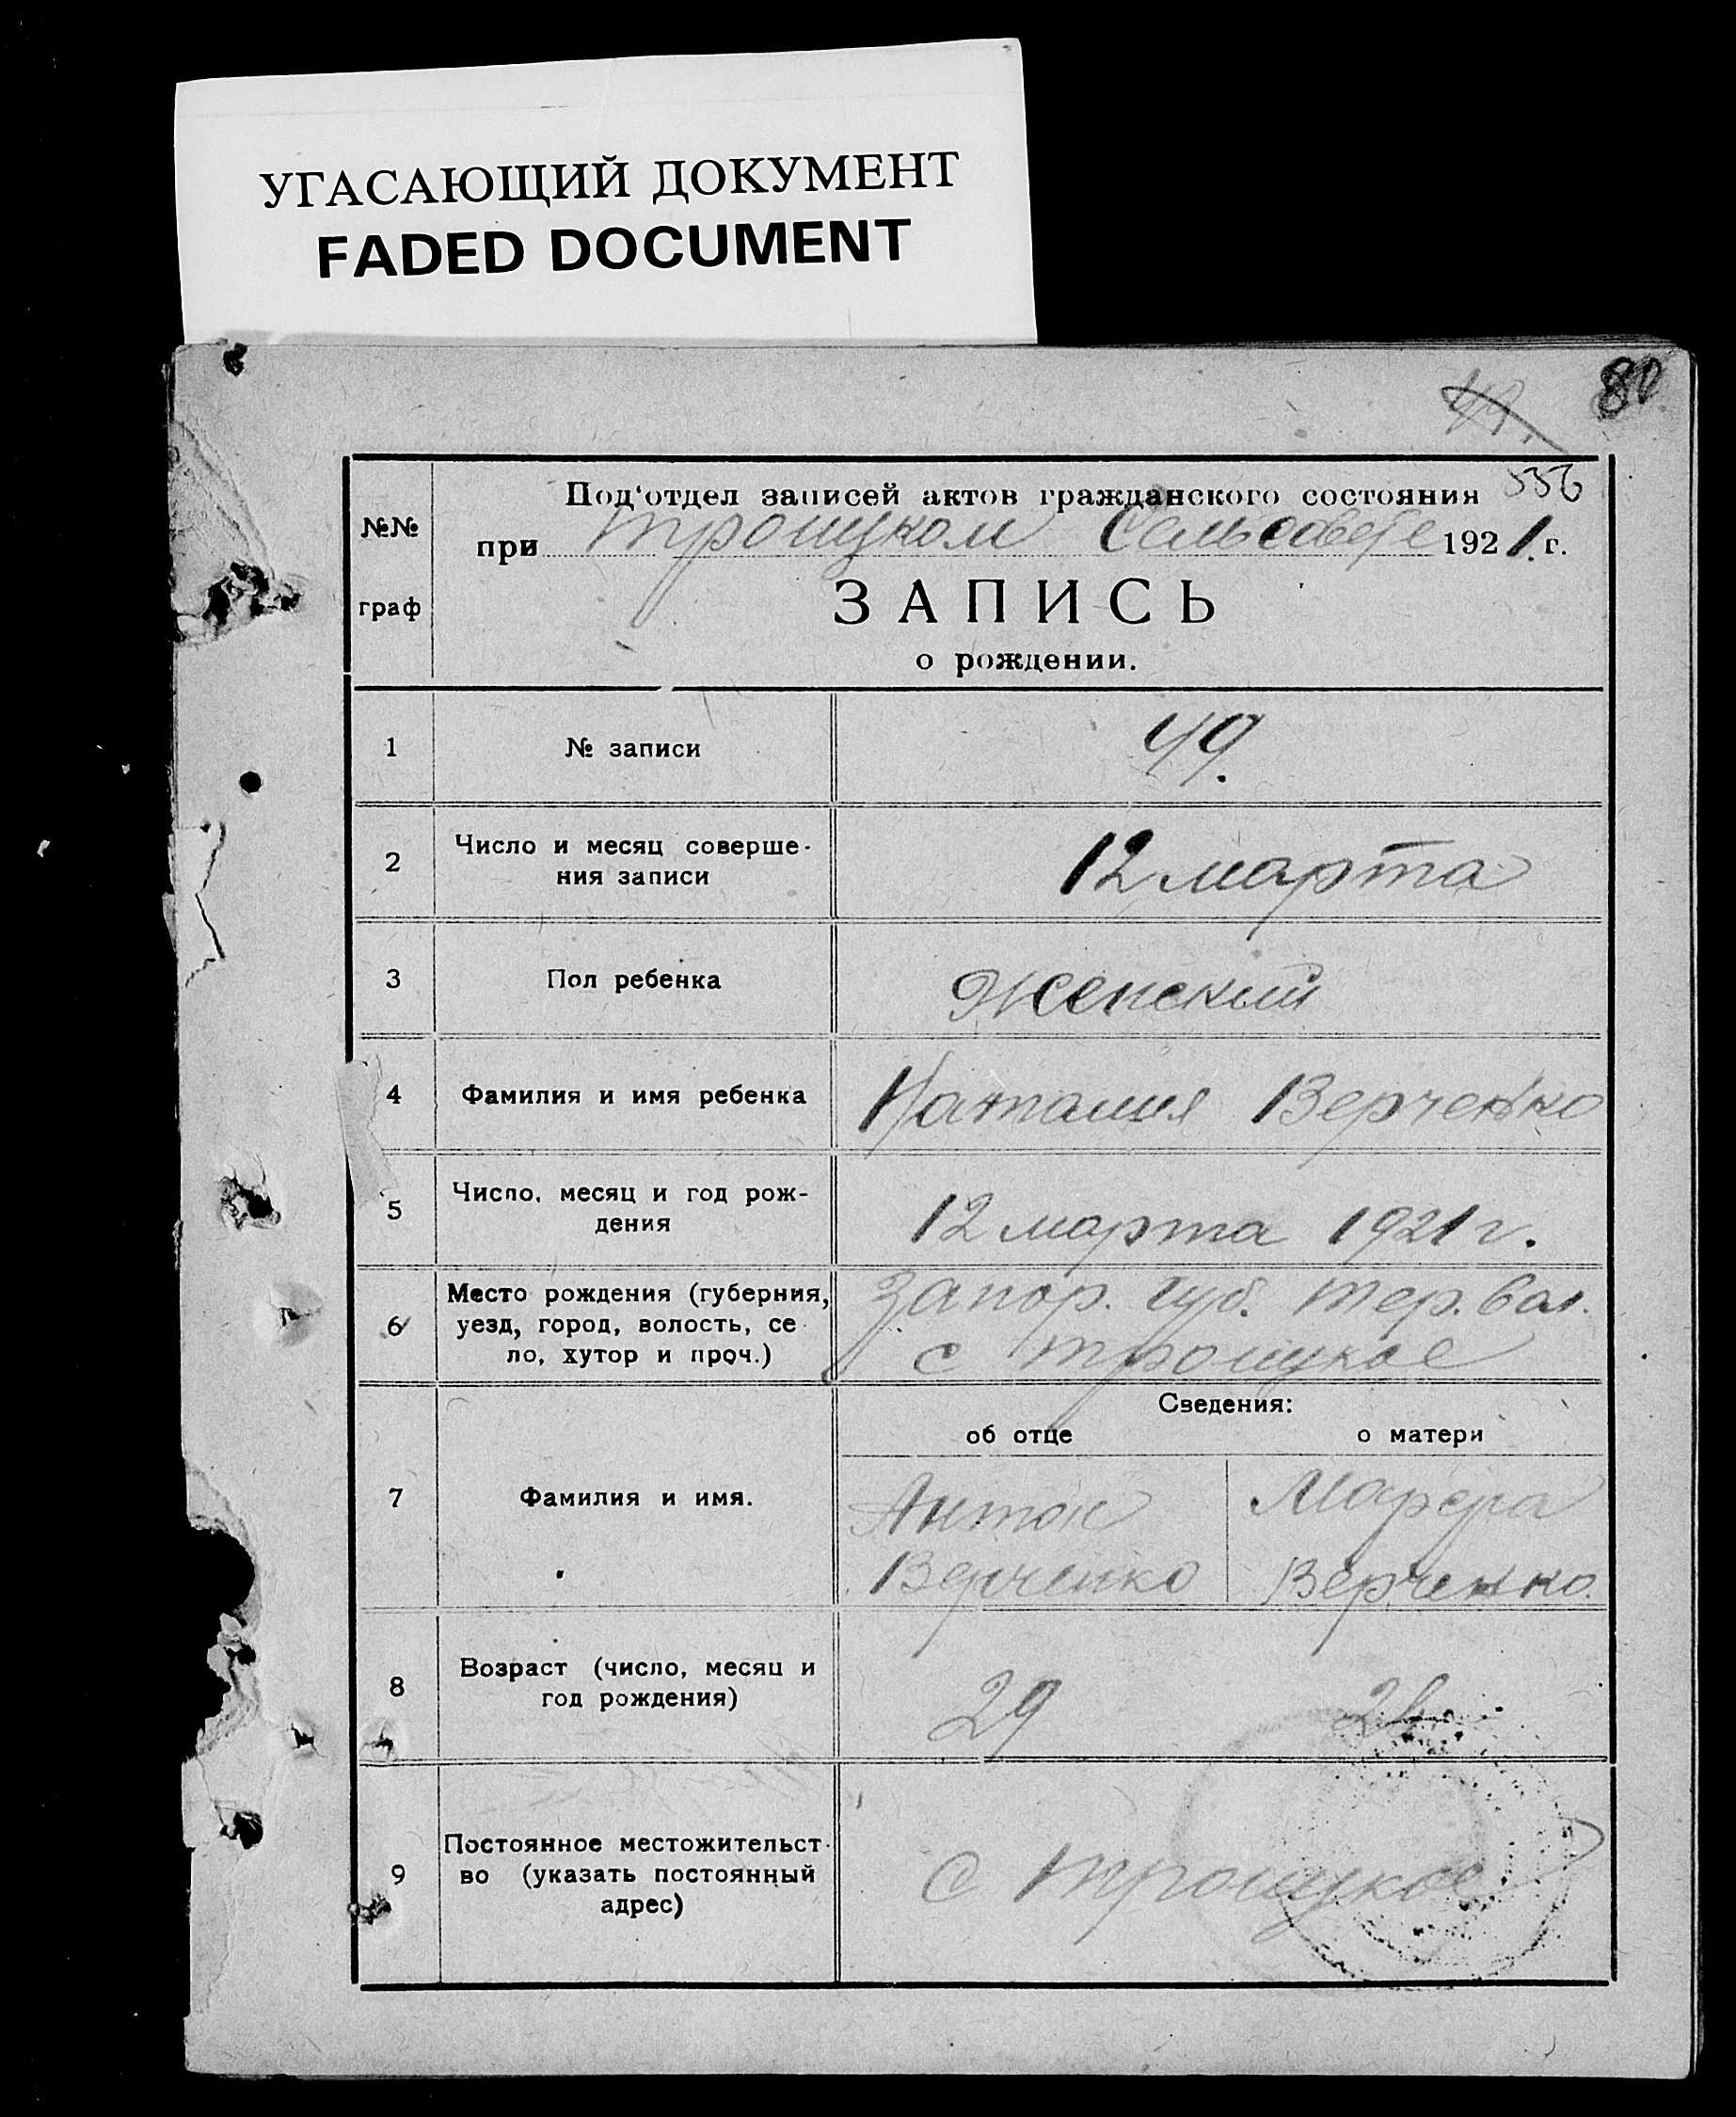 УГАСАЮЩИЙ ДОКУМЕНТ
FADED DOCUMENT
80
49.
556
№№
граф
Под'отдел записей актов гражданского состояния
при Троицком Сельсовете 1921 г.
ЗАПИСЬ
о рождении.
1 № записи 49.
2 Число и месяц соверше-
ния записи 12 марта
3 Пол ребенка Женский
4 Фамилия и имя ребенка Наталия Верченко
5 Число, месяц и год рож-
дения 12 марта 1921 г.
6 Место рождения (губерния,
уезд, город, волость, се
ло, хутор и проч.)
Запор. губ. Тер. вол.
с Троицкое
Сведения:
об отце о матери
7 Фамилия и имя.
Антон
Верченко
Верченко
8 Возраст (число, месяц и
год рождения) 29
9 Постоянное местожительст-
во (указать постоянный
адрес)
с Троицкое